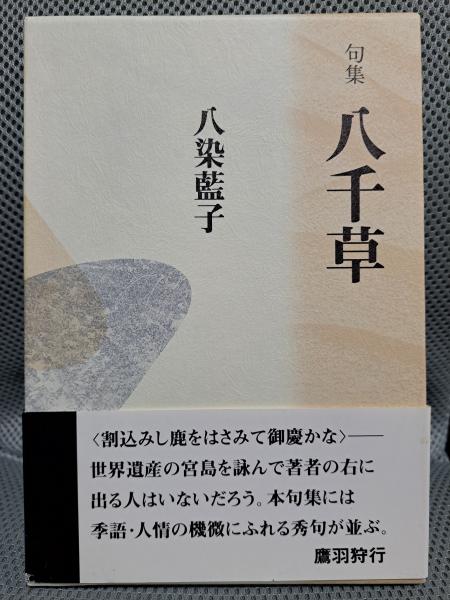 句集 八千草
八染藍子
〈割込みし鹿をはさみて御慶かな〉――
世界遺産の宮島を詠んで著者の右に
出る人はいないだろう。本句集には
季語・人情の機微にふれる秀句が並ぶ。
鷹羽狩行